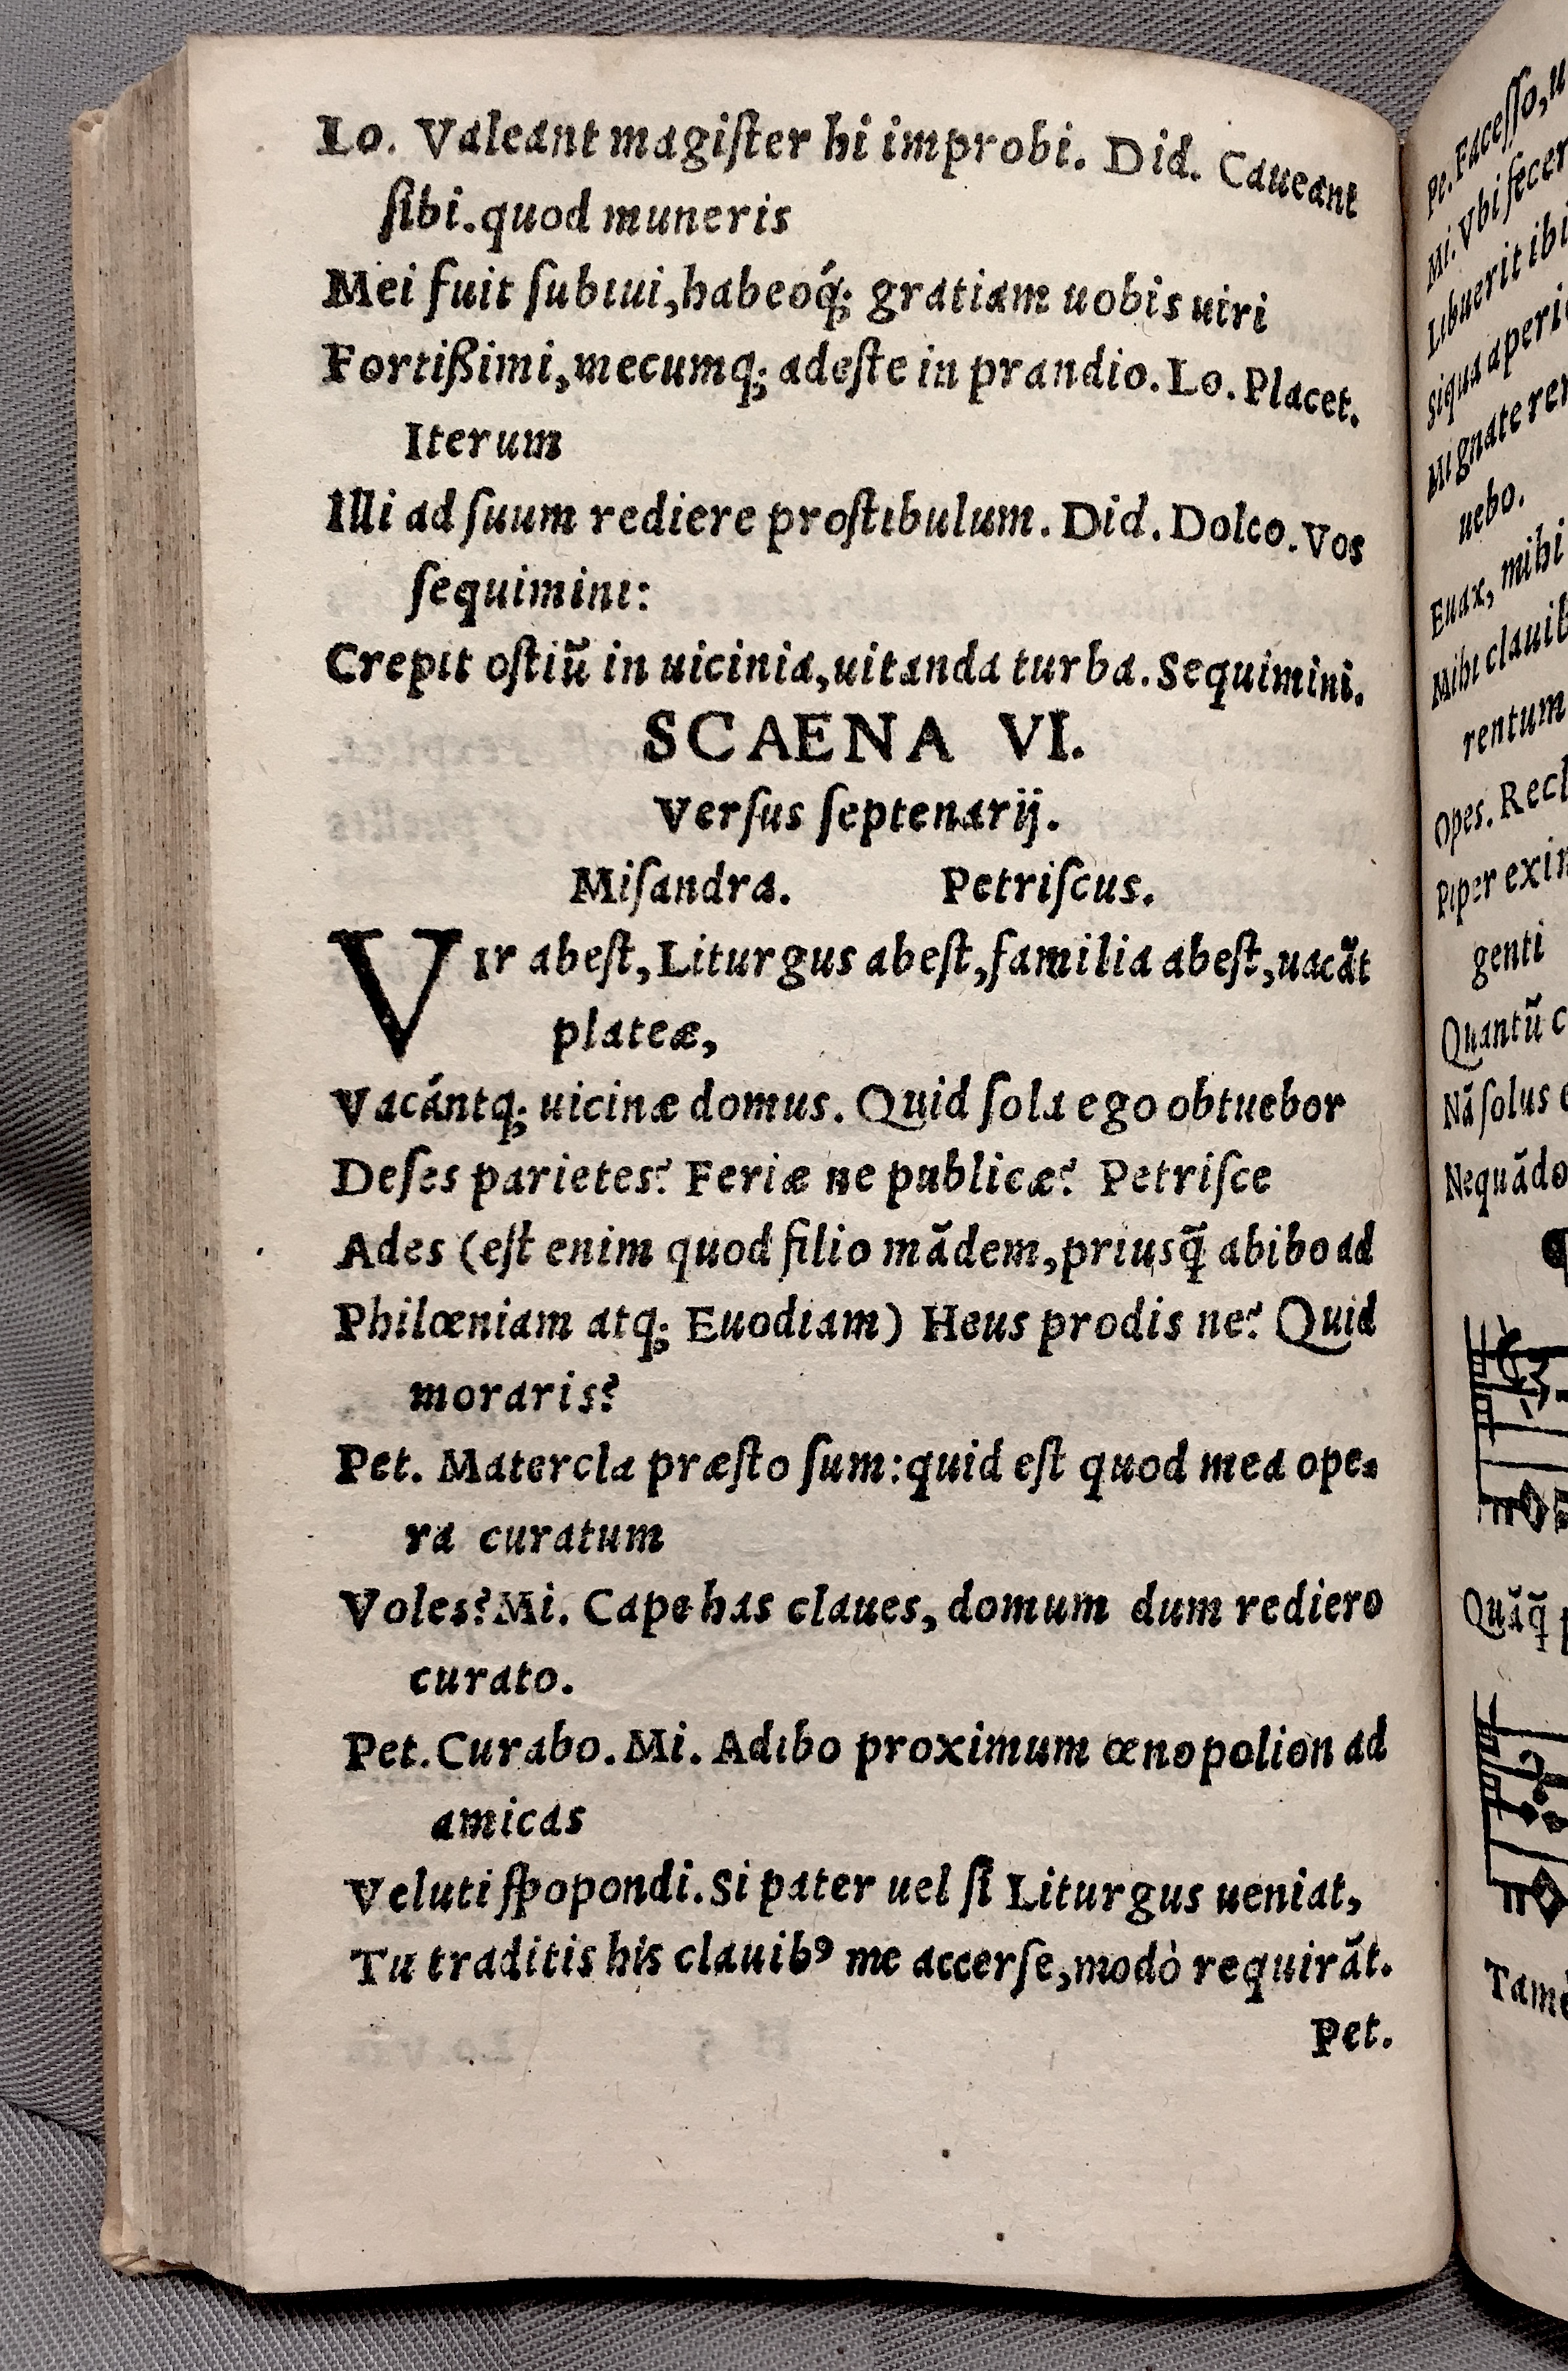 Lo. Valeant magiſter hi improbi. Did. Caueant
ſibi. quod muneris
Mei fuit ſubiui, habeoq́; gratiam uobis uiri
Fortißimi, mecumq; adeſte in prandio. Lo. Placet.
Iterum
Illi ad ſuum rediere proſtibulum. Did. Doleo. Vos
ſequimini:
Crepit oſtiũ in uicinia, uitanda turba. Sequimini.
SCAENA VI.
Verſus ſeptenarij.
Miſandra. Petriſcus.
VIr abeſt, Liturgus abeſt, familia abeſt, uacãt
plateæ,
Vacántq; uicinæ domus. Quid ſola ego obtuebor
Deſes parietes? Feriæ ne publicæ? Petriſce
Ades (eſt enim quod filio mãdem, priusq̃ abibo ad
Philœniam atq; Euodiam) Heus prodis ne? Quid
moraris?
Pet. Matercla præſto ſum: quid eſt quod mea ope-
ra curatum
Voles? Mi. Cape has claues, domum dum rediero
curato.
Pet. Curabo. Mi. Adibo proximum œnopolion ad
amicas
Veluti ſpopondi. Si pater uel ſi Liturgus ueniat,
Tu traditis his clauibꝰ me accerſe, modò requirãt.
Pet.
Pe. Faceſſo, u
Mi. Vbi fecer
Libuerit ibi
Siqua aperi
Mi gnate rer
uebo.
Euax, mihi
Mihi clauib
rentum
Opes. Recl
Piper exim
genti
Quantũ c
Nã ſolus
Nequãdo
Quãq̃
Tame